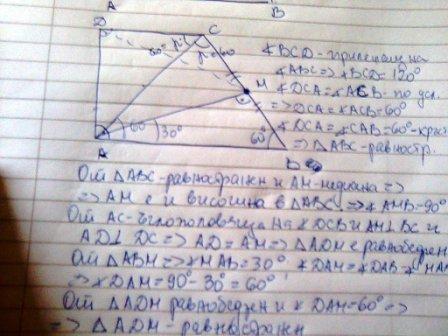 A B
D C
60° 60°
∢BCD - прилежащ на
∢ABC => ∢BCD = 120°
M
∢DCA = ∢ACB - по усл.
=> ∢DCA = ∢ACB = 60°
A 60 30°
60° B
∢DCA = ∢CAB = 60° - кръс
=> △ABC - равностр.
От △ABC - равностранен и AM - медиана =>
=> AM е и височина в △ABC => ∢AMB = 90°
От AC - ъглополовяща на ∢DCB и AM⊥BC и
AD⊥DC => AD = AM => △ADM е равнобедрен
От △ABM => ∢MAB = 30° ∢DAM = ∢DAB - ∢MAB
=> ∢DAM = 90° - 30° = 60°
От △ADM равнобедрен и ∢DAM = 60° =>
=> △ADM - равностранен